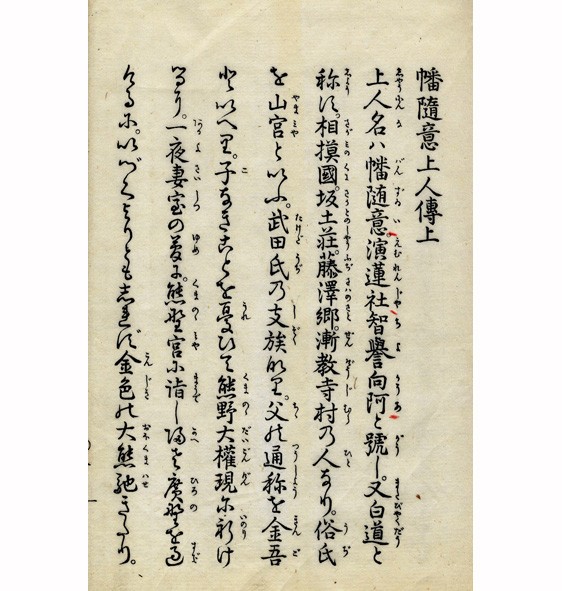 幡隨意上人傳上
上人名ハ幡随意。演蓮社智譽向阿と號し。又白道と
称す。相摸國。坂土荘。藤澤郷。漸教寺村乃人なり。俗氏
を山宮といふ。武田氏乃支族なり。父の通称を金吾
といへり。子なきことを憂ひて熊野大權現に祈け
るなり。一夜妻室の夢に。熊野宮に詣し帰さ廣野を過
けるに。いづくよりともしれず金色の大熊馳きたり。